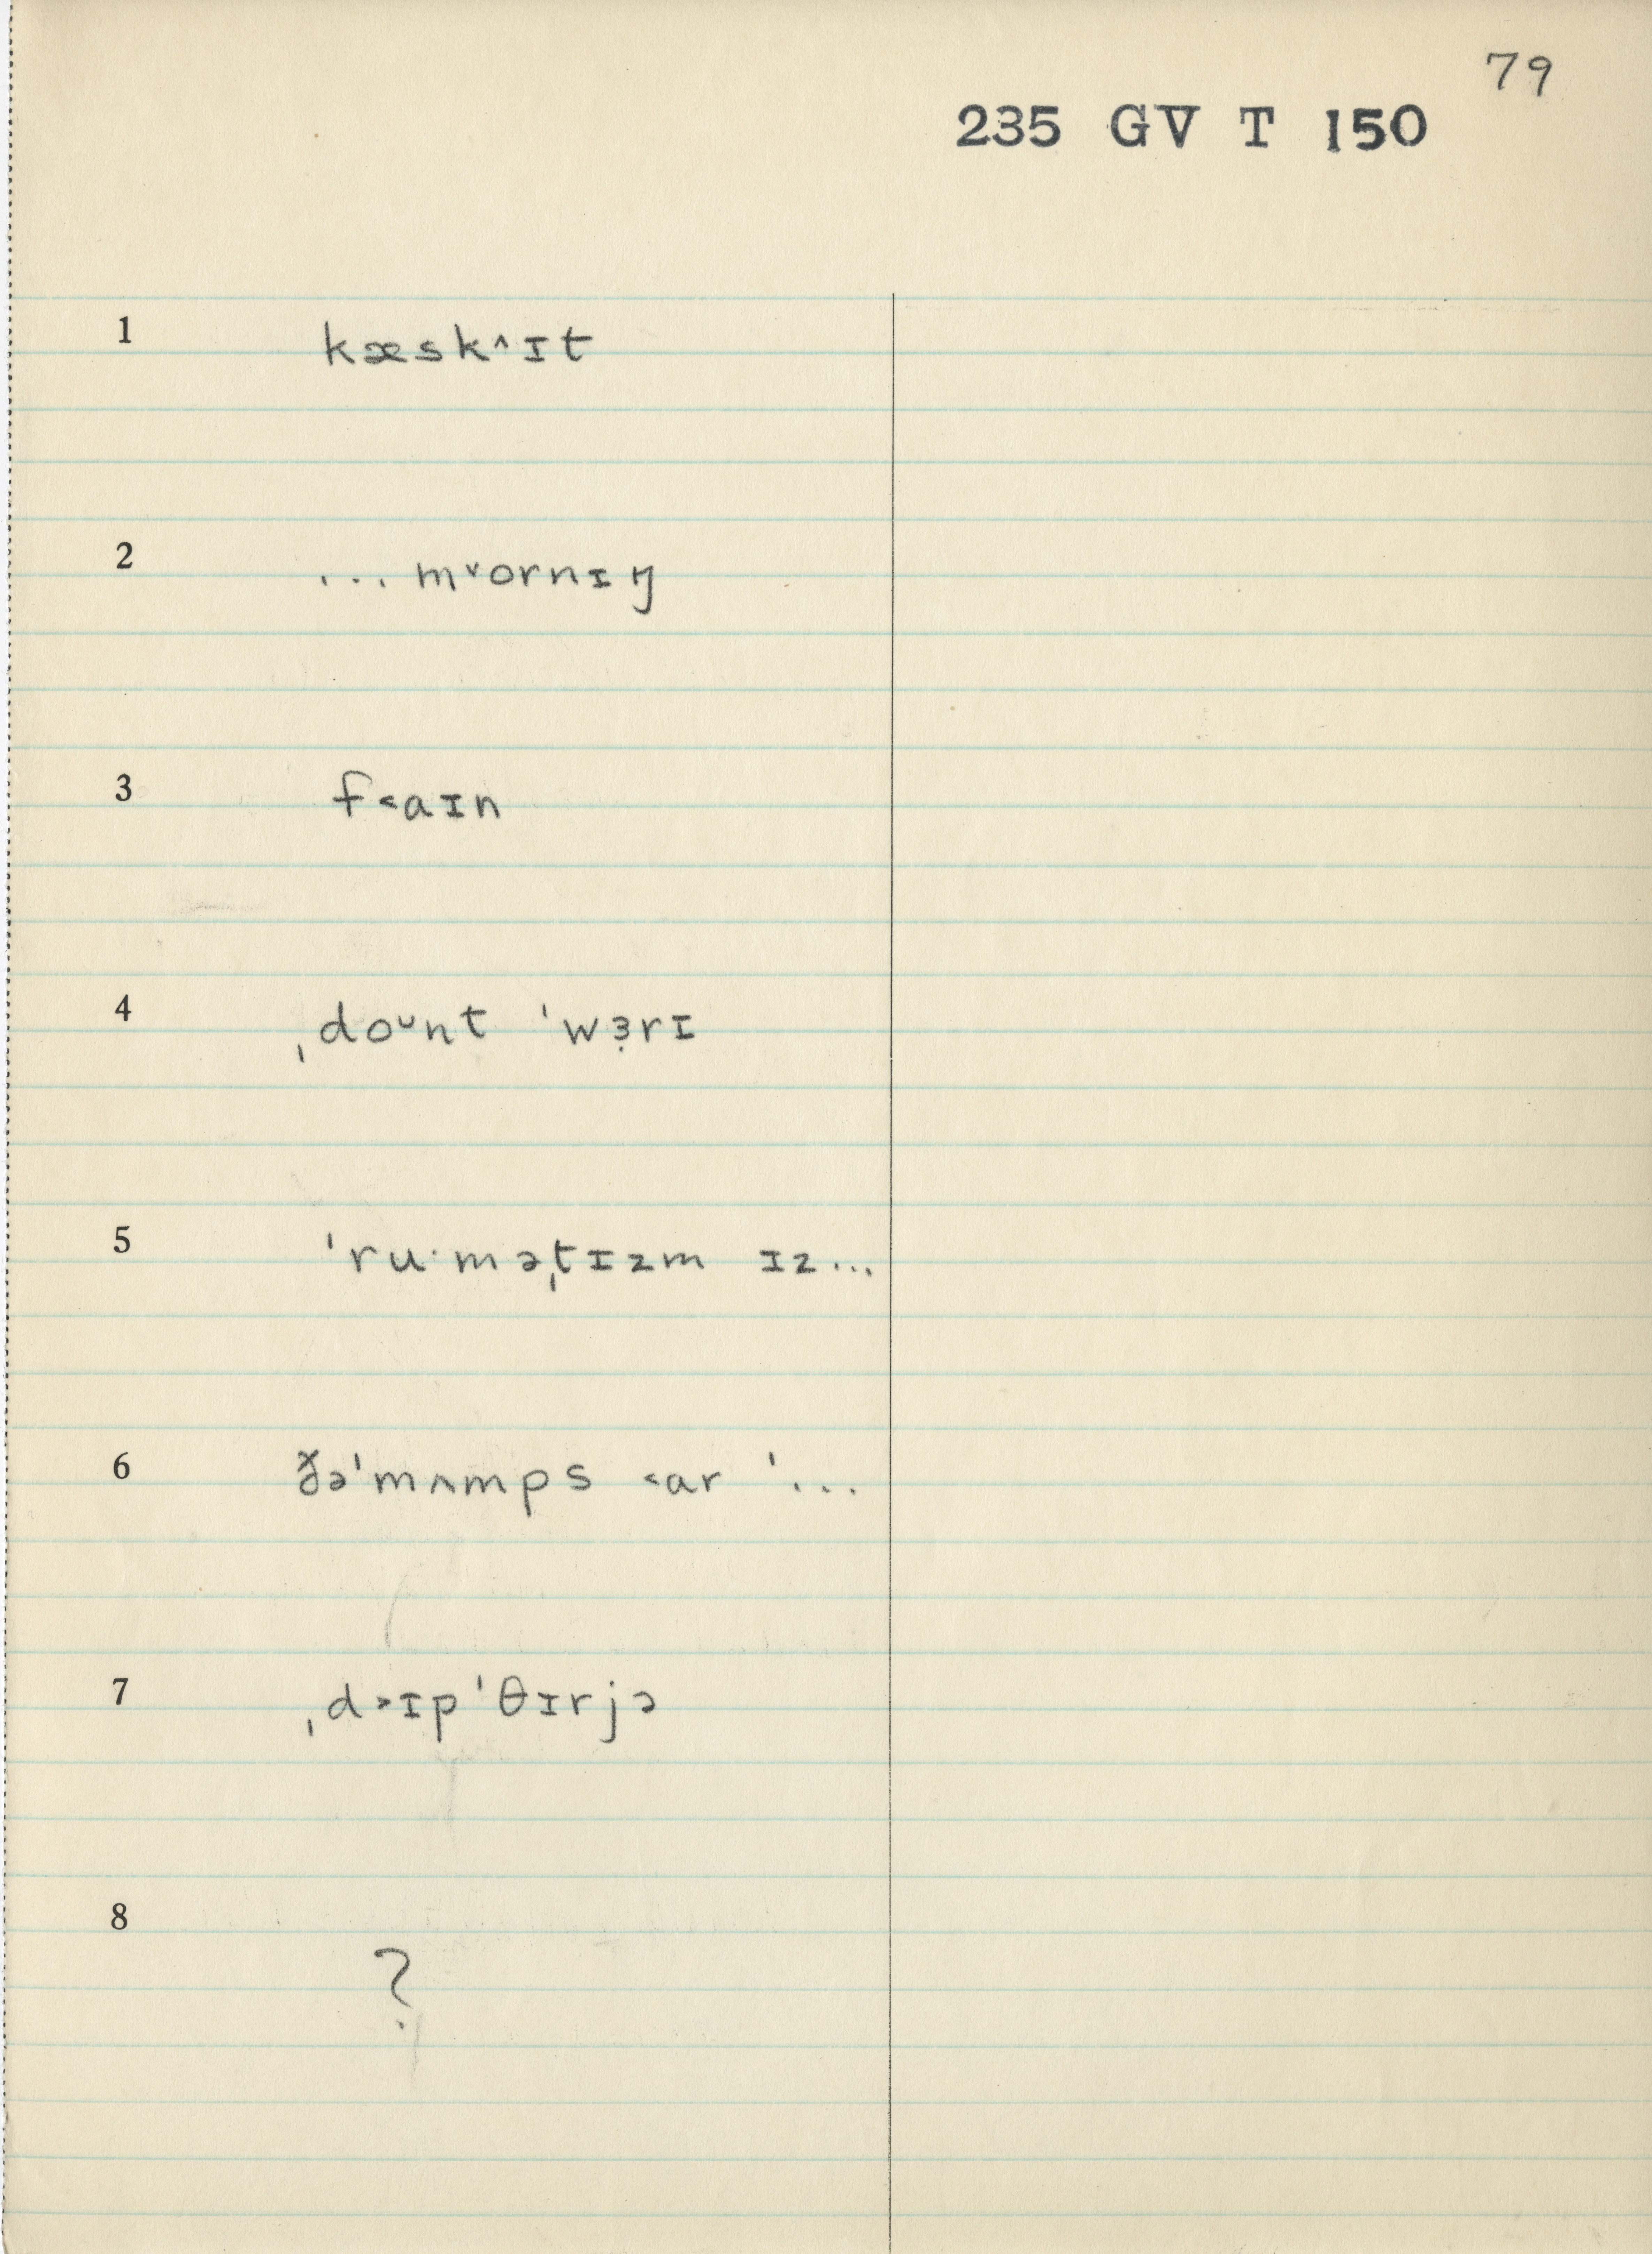 79
235 GV T 150
1 kæsk^ɪt
2 ... m˅ornɪŋ
3 f˂aɪn
4 ˌdoᴗnt ˈwɜ̣rɪ
5 ˈru·məˌtɪzm ɪz...
6 ðəˈmʌmps ˂ar ˈ...
7 ˌd˃ɪpˈθɪrjə
8 ?